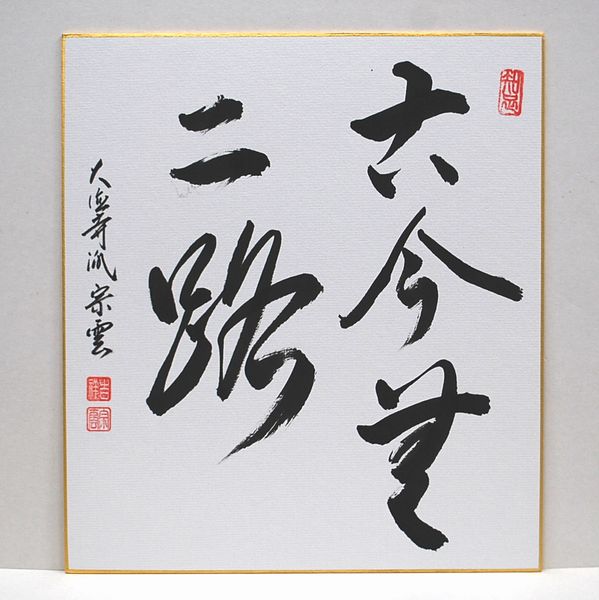 古今無
二路
大徳寺派宗雲